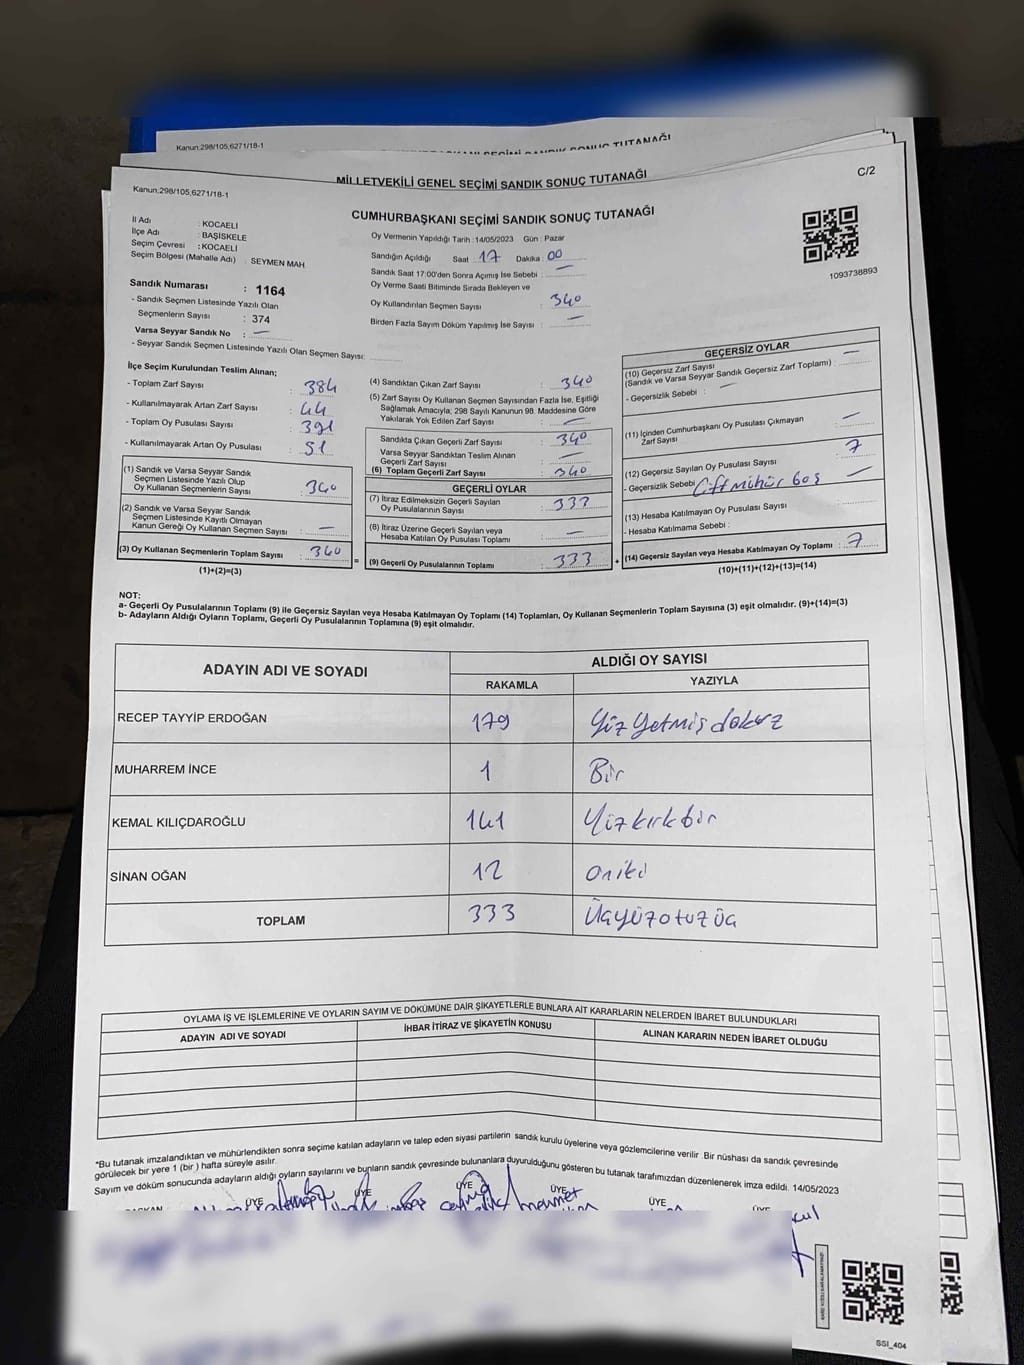 Kanun:298/105,6271/18-1
MİLLETVEKİLİ GENEL SEÇİMİ SANDIK SONUÇ TUTANAĞI
C/2
Kanun:298/105,6271/18-1
CUMHURBAŞKANI SEÇİMİ SANDIK SONUÇ TUTANAĞI
İl Adı : KOCAELİ
İlçe Adı : BAŞİSKELE
Seçim Çevresi : KOCAELİ
Seçim Bölgesi (Mahalle Adı) : SEYMEN MAH
Sandık Numarası : 1164
- Sandık Seçmen Listesinde Yazılı Olan
Seçmenlerin Sayısı : 374
Varsa Seyyar Sandık No : —
- Seyyar Sandık Seçmen Listesinde Yazılı Olan Seçmen Sayısı:
Oy Vermenin Yapıldığı Tarih :14/05/2023 Gün : Pazar
Sandığın Açıldığı Saat : 17 Dakika : 00
Sandık Saat 17:00'den Sonra Açımış İse Sebebi : —
Oy Verme Saati Bitiminde Sırada Bekleyen ve
Oy Kullandırılan Seçmen Sayısı : 340
Birden Fazla Sayım Döküm Yapılmış İse Sayısı : —
1093738893
İlçe Seçim Kurulundan Teslim Alınan;
- Toplam Zarf Sayısı : 384
- Kullanılmayarak Artan Zarf Sayısı : 44
- Toplam Oy Pusulası Sayısı : 391
- Kullanılmayarak Artan Oy Pusulası : 51
(1) Sandık ve Varsa Seyyar Sandık
Seçmen Listesinde Yazılı Olup
Oy Kullanan Seçmenlerin Sayısı : 340
(2) Sandık ve Varsa Seyyar Sandık
Seçmen Listesinde Kayıtlı Olmayan
Kanun Gereği Oy Kullanan Seçmen Sayısı : —
(3) Oy Kullanan Seçmenlerin Toplam Sayısı : 340
(1)+(2)=(3)
(4) Sandıktan Çıkan Zarf Sayısı : 340
(5) Zarf Sayısı Oy Kullanan Seçmen Sayısından Fazla İse, Eşitliği
Sağlamak Amacıyla; 298 Sayılı Kanunun 98. Maddesine Göre
Yakılarak Yok Edilen Zarf Sayısı : —
Sandıkta Çıkan Geçerli Zarf Sayısı : 340
Varsa Seyyar Sandıktan Teslim Alınan
Geçerli Zarf Sayısı : —
(6) Toplam Geçerli Zarf Sayısı : 340
GEÇERLİ OYLAR
(7) İtiraz Edilmeksizin Geçerli Sayılan
Oy Pusulasının Sayısı : 333
(8) İtiraz Üzerine Geçerli Sayılan veya
Hesaba Katılan Oy Pusulası Toplamı : —
= (9) Geçerli Oy Pusulalarının Toplamı : 333 +
GEÇERSİZ OYLAR
(10) Geçersiz Zarf Sayısı : —
(Sandık ve Varsa Seyyar Sandık Geçersiz Zarf Toplamı)
- Geçersizlik Sebebi : —
(11) İçinden Cumhurbaşkanı Oy Pusulası Çıkmayan
Zarf Sayısı : —
(12) Geçersiz Sayılan Oy Pusulası Sayısı : 7
- Geçersizlik Sebebi : Çift mühür boş
(13) Hesaba Katılmayan Oy Pusulası Sayısı : —
- Hesaba Katılmama Sebebi :
(14) Geçersiz Sayılan veya Hesaba Katılmayan Oy Toplamı : 7
(10)+(11)+(12)+(13)=(14)
NOT:
a- Geçerli Oy Pusulalarının Toplamı (9) ile Geçersiz Sayılan veya Hesaba Katılmayan Oy Toplamı (14) Toplamları, Oy Kullanan Seçmenlerin Toplam Sayısına (3) eşit olmalıdır. (9)+(14)=(3)
b- Adayların Aldığı Oyların Toplamı, Geçerli Oy Pusulalarının Toplamına (9) eşit olmalıdır.
ADAYIN ADI VE SOYADI ALDIĞI OY SAYISI
RAKAMLA YAZIYLA
RECEP TAYYİP ERDOĞAN 179 Yüz Yetmiş dokuz
MUHARREM İNCE 1 Bir
KEMAL KILIÇDAROĞLU 141 Yüz kırk bir
SİNAN OĞAN 12 on iki
TOPLAM 333 Üçyüzotuzüç
OYLAMA İŞ VE İŞLEMLERİNE VE OYLARIN SAYIM VE DÖKÜMÜNE DAİR ŞİKAYETLERLE BUNLARA AİT KARARLARIN NELERDEN İBARET BULUNDUKLARI
ADAYIN ADI VE SOYADI İHBAR İTİRAZ VE ŞİKAYETİN KONUSU ALINAN KARARIN NEDEN İBARET OLDUĞU
*Bu tutanak imzalandıktan ve mühürlendikten sonra seçime katılan adayların ve talep eden siyasi partilerin sandık kurulu üyelerine veya gözlemcilerine verilir .Bir nüshası da sandık çevresinde
görülecek bir yere 1 (bir ) hafta süreyle asılır.
Sayım ve döküm sonucunda adayların aldığı oyların sayılarını ve bunların sandık çevresinde bulunanlara duyurulduğunu gösteren bu tutanak tarafımızdan düzenlenerek imza edildi. 14/05/2023
BAŞKAN ÜYE ÜYE ÜYE ÜYE ÜYE ÜYE
SSI_404